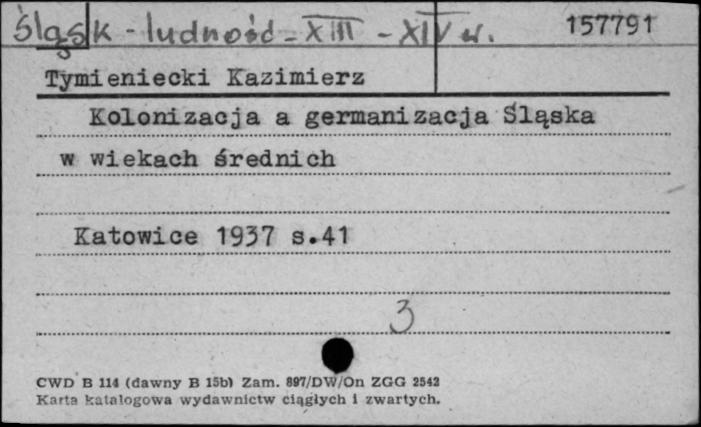 śląsk - ludność - XIII - XIV w. 157791
Tymieniecki Kazimierz
Kolonizacja a germanizacja Śląska
w wiekach średnich
Katowice 1937 s.41
3
CWD B 114 (dawny B 15b) Zam. 897/DW/On ZGG 2542
Karta katalogowa wydawnictw ciągłych i zwartych.